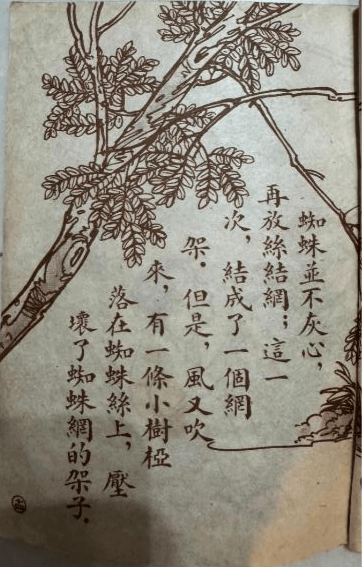 蜘蛛並不灰心，
再放絲結網；這一
次，結成了一個網
架．但是，風又吹
來，有一條小樹椏
落在蜘蛛絲上，壓
壞了蜘蛛網的架子．